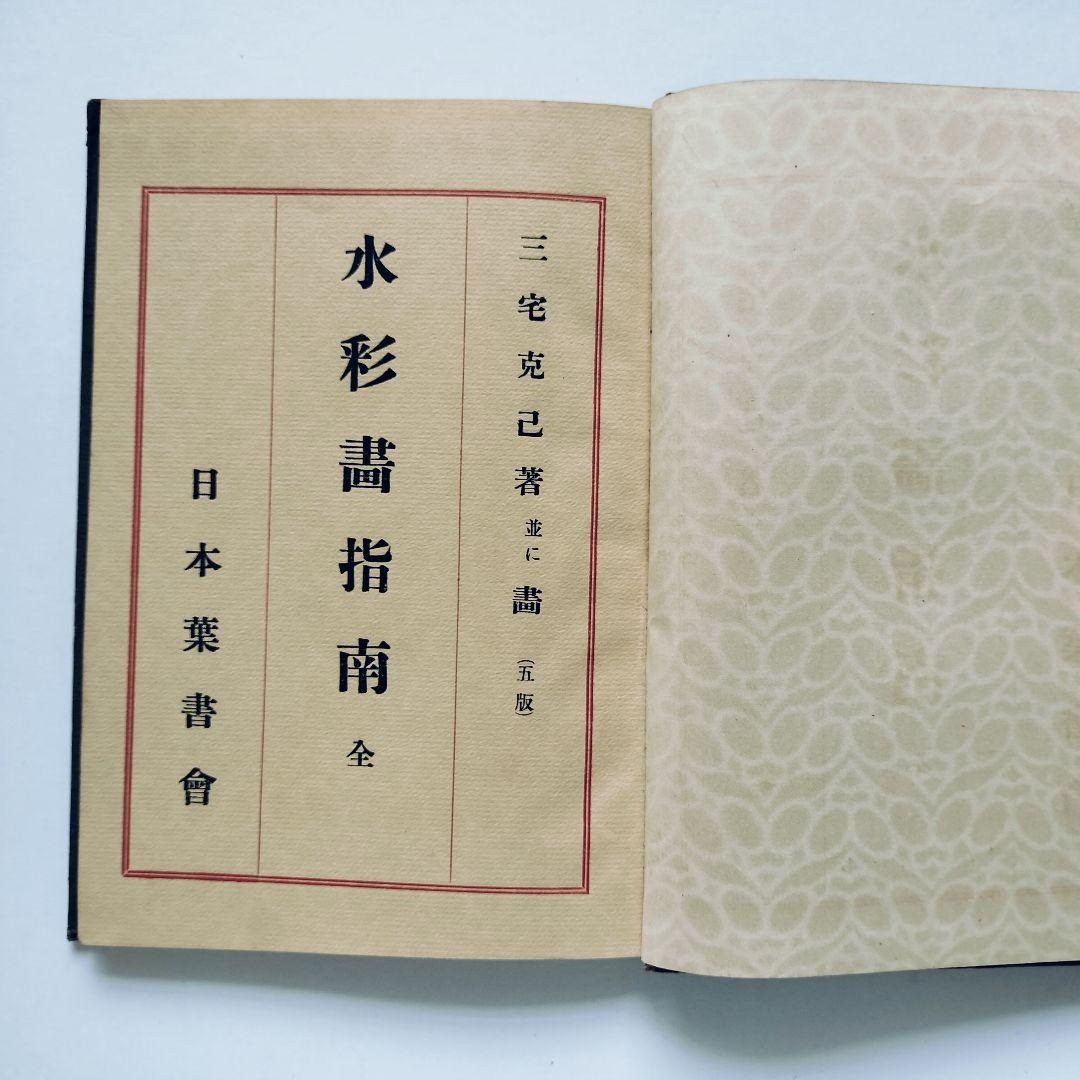 三宅克己著並に畫（五版）
水彩畫指南全
日本葉書會